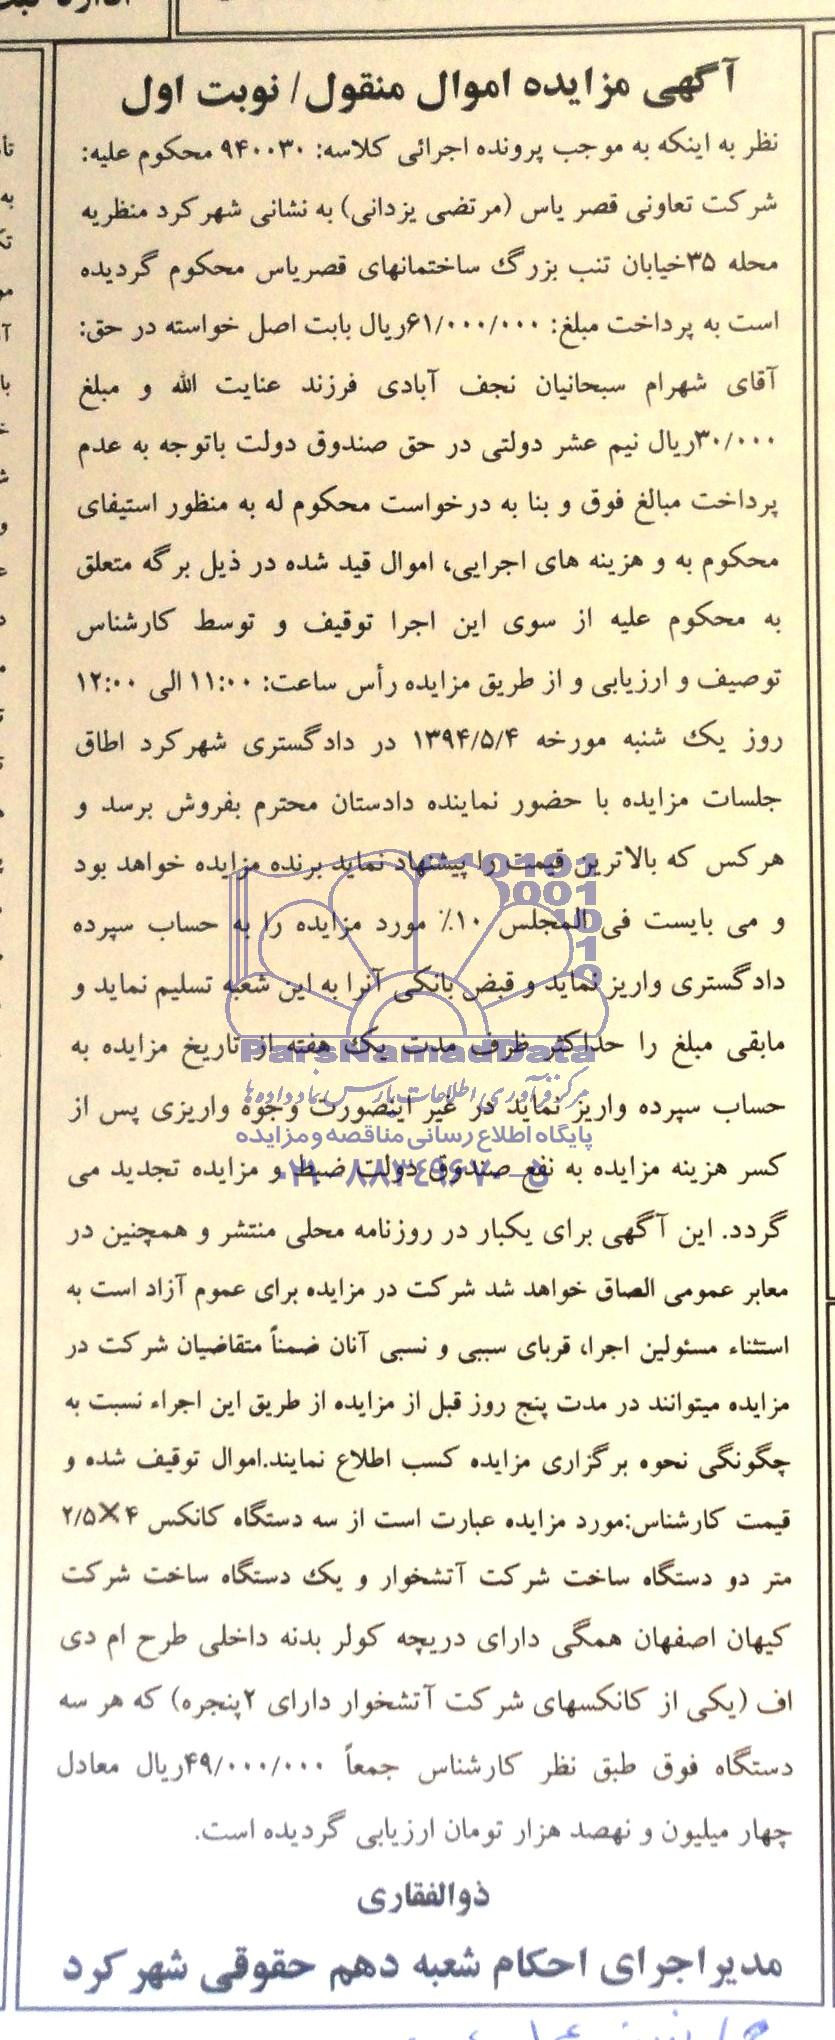 آگهی مزایده اموال منقول/ نوبت اول
نظر به اینکه به موجب پرونده اجرائی کلاسه: ۹۴۰۰۳۰ محکوم علیه:
شرکت تعاونی قصر یاس (مرتضی یزدانی) به نشانی شهرکرد منظریه
محله ۳۵خیابان تنب بزرگ ساختمانهای قصریاس محکوم گردیده
است به پرداخت مبلغ: ۶۱/۰۰۰/۰۰۰ریال بابت اصل خواسته در حق:
آقای شهرام سبحانیان نجف آبادی فرزند عنایت الله و مبلغ
۳۰/۰۰۰ریال نیم عشر دولتی در حق صندوق دولت باتوجه به عدم
پرداخت مبالغ فوق و بنا به درخواست محکوم له به منظور استیفای
محکوم به و هزینه های اجرایی، اموال قید شده در ذیل برگه متعلق
به محکوم علیه از سوی این اجرا توقیف و توسط کارشناس
توصیف و ارزیابی و از طریق مزایده رأس ساعت: ۱۱:۰۰ الی ۱۲:۰۰
روز یک شنبه مورخه ۱۳۹۴/۵/۴ در دادگستری شهرکرد اطاق
جلسات مزایده با حضور نماینده دادستان محترم بفروش برسد و
هرکس که بالاترین قیمت را پیشنهاد نماید برنده مزایده خواهد بود
و می بایست فی المجلس ۱۰٪ مورد مزایده را به حساب سپرده
دادگستری واریز نماید و قبض بانکی آنرا به این شعبه تسلیم نماید و
مابقی مبلغ را حداکثر ظرف مدت یک هفته از تاریخ مزایده به
ParsNamadData
مرکز فرآوری اطلاعات پارس نماد داده ها
حساب سپرده واریز نماید در غیر اینصورت وجوه واریزی پس از
پایگاه اطلاع رسانی مناقصه و مزایده
کسر هزینه مزایده به نفع صندوق دولت ضبط و مزایده تجدید می
۰۲۱-۸۸۳۴۹۶۷۰-۵
گردد. این آگهی برای یکبار در روزنامه محلی منتشر و همچنین در
معابر عمومی الصاق خواهد شد شرکت در مزایده برای عموم آزاد است به
استثناء مسئولین اجرا، قربای سببی و نسبی آنان ضمناً متقاضیان شرکت در
مزایده میتوانند در مدت پنج روز قبل از مزایده از طریق این اجراء نسبت به
چگونگی نحوه برگزاری مزایده کسب اطلاع نمایند.اموال توقیف شده و
قیمت کارشناس:مورد مزایده عبارت است از سه دستگاه کانکس ۴×۲/۵
متر دو دستگاه ساخت شرکت آتشخوار و یک دستگاه ساخت شرکت
کیهان اصفهان همگی دارای دریچه کولر بدنه داخلی طرح ام دی
اف (یکی از کانکسهای شرکت آتشخوار دارای ۲پنجره) که هر سه
دستگاه فوق طبق نظر کارشناس جمعاً ۴۹/۰۰۰/۰۰۰ریال معادل
چهار میلیون و نهصد هزار تومان ارزیابی گردیده است.
ذوالفقاری
مدیراجرای احکام شعبه دهم حقوقی شهرکرد